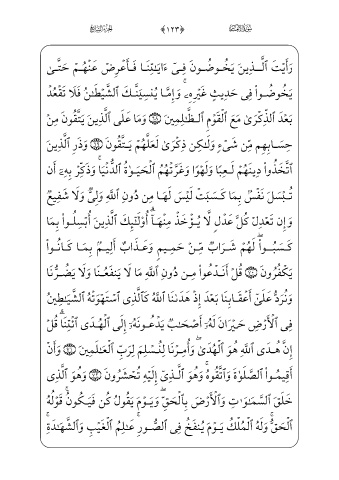 سورة الأنعام ﴿١٢٣﴾ الجزء السابع
رَأَيْتَ ٱلَّذِينَ يَخُوضُونَ فِىٓ ءَايَٰتِنَا فَأَعْرِضْ عَنْهُمْ حَتَّىٰ
يَخُوضُوا۟ فِى حَدِيثٍ غَيْرِهِۦ وَإِمَّا يُنسِيَنَّكَ ٱلشَّيْطَٰنُ فَلَا تَقْعُدْ
بَعْدَ ٱلذِّكْرَىٰ مَعَ ٱلْقَوْمِ ٱلظَّٰلِمِينَ ﴿٦٨﴾ وَمَا عَلَى ٱلَّذِينَ يَتَّقُونَ مِنْ
حِسَابِهِم مِّن شَىْءٍ وَلَٰكِن ذِكْرَىٰ لَعَلَّهُمْ يَتَّقُونَ ﴿٦٩﴾ وَذَرِ ٱلَّذِينَ
ٱتَّخَذُوا۟ دِينَهُمْ لَعِبًا وَلَهْوًا وَغَرَّتْهُمُ ٱلْحَيَوٰةُ ٱلدُّنْيَا وَذَكِّرْ بِهِۦٓ أَن
تُبْسَلَ نَفْسٌۢ بِمَا كَسَبَتْ لَيْسَ لَهَا مِن دُونِ ٱللَّهِ وَلِىٌّ وَلَا شَفِيعٌ
وَإِن تَعْدِلْ كُلَّ عَدْلٍ لَّا يُؤْخَذْ مِنْهَآ أُو۟لَٰٓئِكَ ٱلَّذِينَ أُبْسِلُوا۟ بِمَا
كَسَبُوا۟ لَهُمْ شَرَابٌ مِّنْ حَمِيمٍ وَعَذَابٌ أَلِيمٌۢ بِمَا كَانُوا۟
يَكْفُرُونَ ﴿٧٠﴾ قُلْ أَنَدْعُوا۟ مِن دُونِ ٱللَّهِ مَا لَا يَنفَعُنَا وَلَا يَضُرُّنَا
وَنُرَدُّ عَلَىٰٓ أَعْقَابِنَا بَعْدَ إِذْ هَدَىٰنَا ٱللَّهُ كَٱلَّذِى ٱسْتَهْوَتْهُ ٱلشَّيَٰطِينُ
فِى ٱلْأَرْضِ حَيْرَانَ لَهُۥٓ أَصْحَٰبٌ يَدْعُونَهُۥٓ إِلَى ٱلْهُدَى ٱئْتِنَا قُلْ
إِنَّ هُدَى ٱللَّهِ هُوَ ٱلْهُدَىٰ وَأُمِرْنَا لِنُسْلِمَ لِرَبِّ ٱلْعَٰلَمِينَ ﴿٧١﴾ وَأَنْ
أَقِيمُوا۟ ٱلصَّلَوٰةَ وَٱتَّقُوهُ وَهُوَ ٱلَّذِىٓ إِلَيْهِ تُحْشَرُونَ ﴿٧٢﴾ وَهُوَ ٱلَّذِى
خَلَقَ ٱلسَّمَٰوَٰتِ وَٱلْأَرْضَ بِٱلْحَقِّ وَيَوْمَ يَقُولُ كُن فَيَكُونُ قَوْلُهُ
ٱلْحَقُّ وَلَهُ ٱلْمُلْكُ يَوْمَ يُنفَخُ فِى ٱلصُّورِ عَٰلِمُ ٱلْغَيْبِ وَٱلشَّهَٰدَةِ